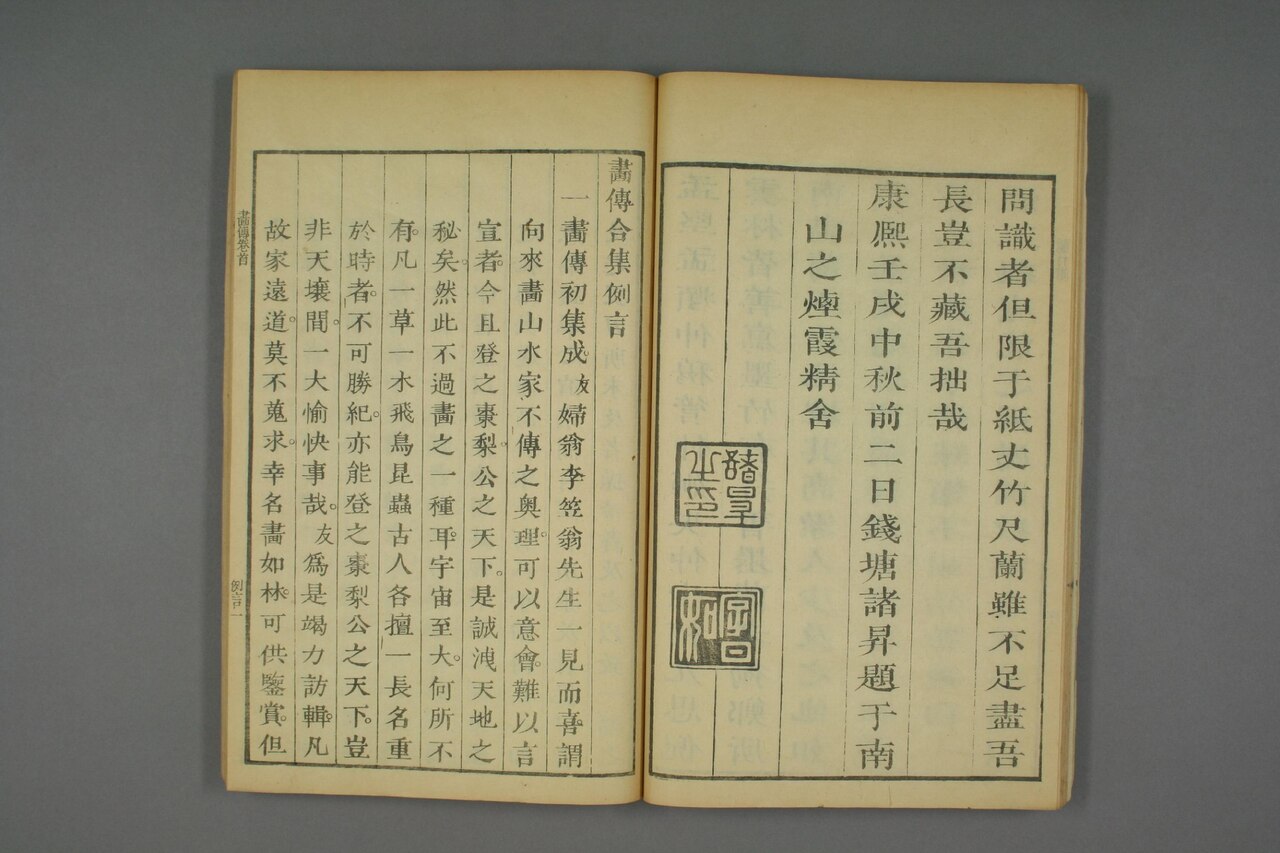 問識者但限于紙丈竹尺蘭雖不足盡吾
長豈不藏吾拙哉
康熈壬戌中秋前二日錢塘諸昇題于南
山之煙霞精舍
諸昇之印
畫傳合集例言
一畫傳初集成友婦翁李笠翁先生一見而喜謂
向來畫山水家不傳之奧理可以意會難以言
宣者今且登之棗梨公之天下是誠洩天地之
秘矣然此不過畫之一種耳宇宙至大何所不
有凡一草一木飛鳥昆蟲古人各擅一長名重
於時者不可勝紀亦能登之棗梨公之天下豈
非天壤間一大愉快事哉友爲是竭力訪輯凡
故家遠道莫不蒐求幸名畫如林可供鑒賞但
畫傳卷首
例言一